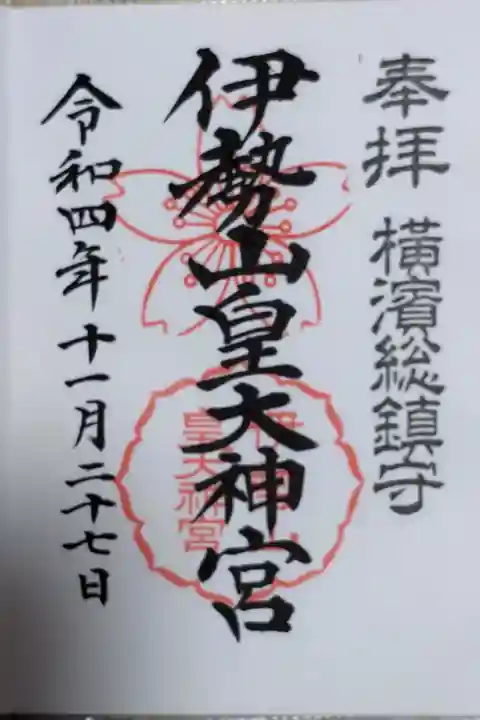 奉拝 横濱総鎮守
伊勢山皇大神宮
伊勢山
皇大神宮
令和四年十一月二十七日